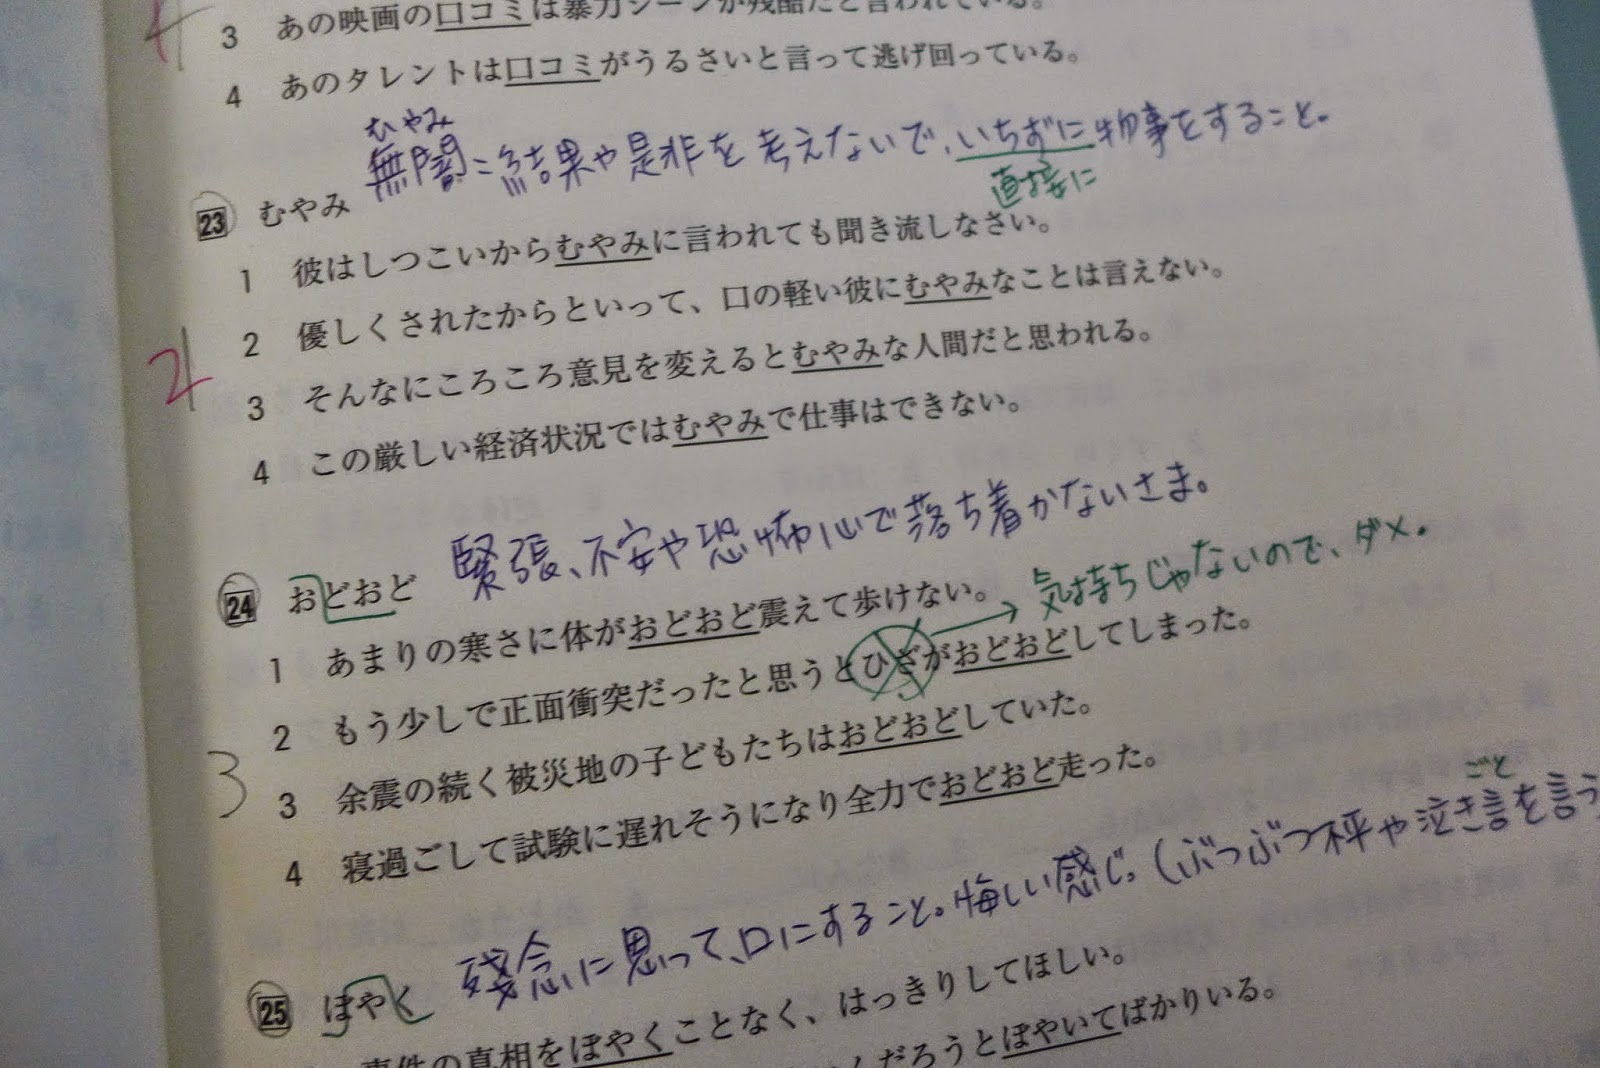 3 あの映画の口コミは暴力シーンが残酷だと言われている。
4 あのタレントは口コミがうるさいと言って逃げ回っている。
むやみ
無闇=結果や是非を考えないで、いちずに物事をすること。
直接に
23 むやみ
1 彼はしつこいからむやみに言われても聞き流しなさい。
2 優しくされたからといって、口の軽い彼にむやみなことは言えない。
2
3 そんなにころころ意見を変えるとむやみな人間だと思われる。
4 この厳しい経済状況ではむやみで仕事はできない。
緊張、不安や恐怖心で落ち着かないさま。
24 おどおど
気持ちじゃないので、ダメ。
1 あまりの寒さに体がおどおど震えて歩けない。
2 もう少しで正面衝突だったと思うとひざがおどおどしてしまった。
3
3 余震の続く被災地の子どもたちはおどおどしていた。
4 寝過ごして試験に遅れそうになり全力でおどおど走った。
ごと
残念に思って、口にすること。悔しい感じ。(ぶつぶつ不平や泣き言を言う
25 ぼやく
事件の真相をぼやくことなく、はっきりしてほしい。
だろうとぼやいてばかりいる。